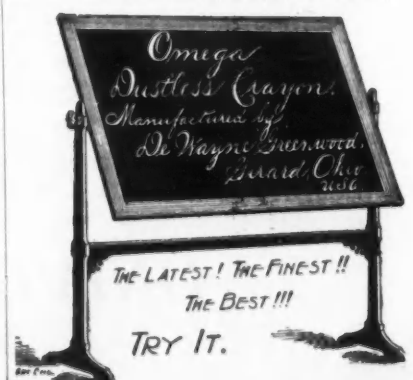 Omega
Dustless Crayon.
Manufactured by
De Wayne Greenwood,
Girard, Ohio
U.S.
THE LATEST! THE FINEST!!
THE BEST!!!
TRY IT.